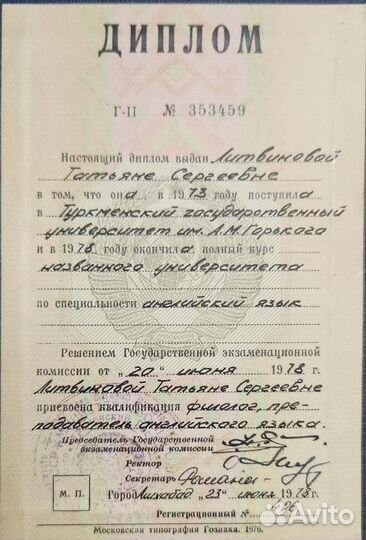 ДИПЛОМ
Г-II № 353459
Настоящий диплом выдан Литвиновой
Татьяне Сергеевне
в том, что она в 1973 году поступила
в Туркменский государственный
университет им. А.М. Горького
и в 1978 году окончила полный курс
названного университета
по специальности английский язык
Решением Государственной экзаменационной
комиссии от „20“ июня 1978 г.
Литвиновой Татьяне Сергеевне
присвоена квалификация филолог, пре-
подаватель английского языка.
Председатель Государственной
экзаменационной комиссии
Ректор
Секретарь
М. П.
Город Ашхабад „23“ июня 1978 г.
Регистрационный №
Московская типография Гознака. 1976.
Avito